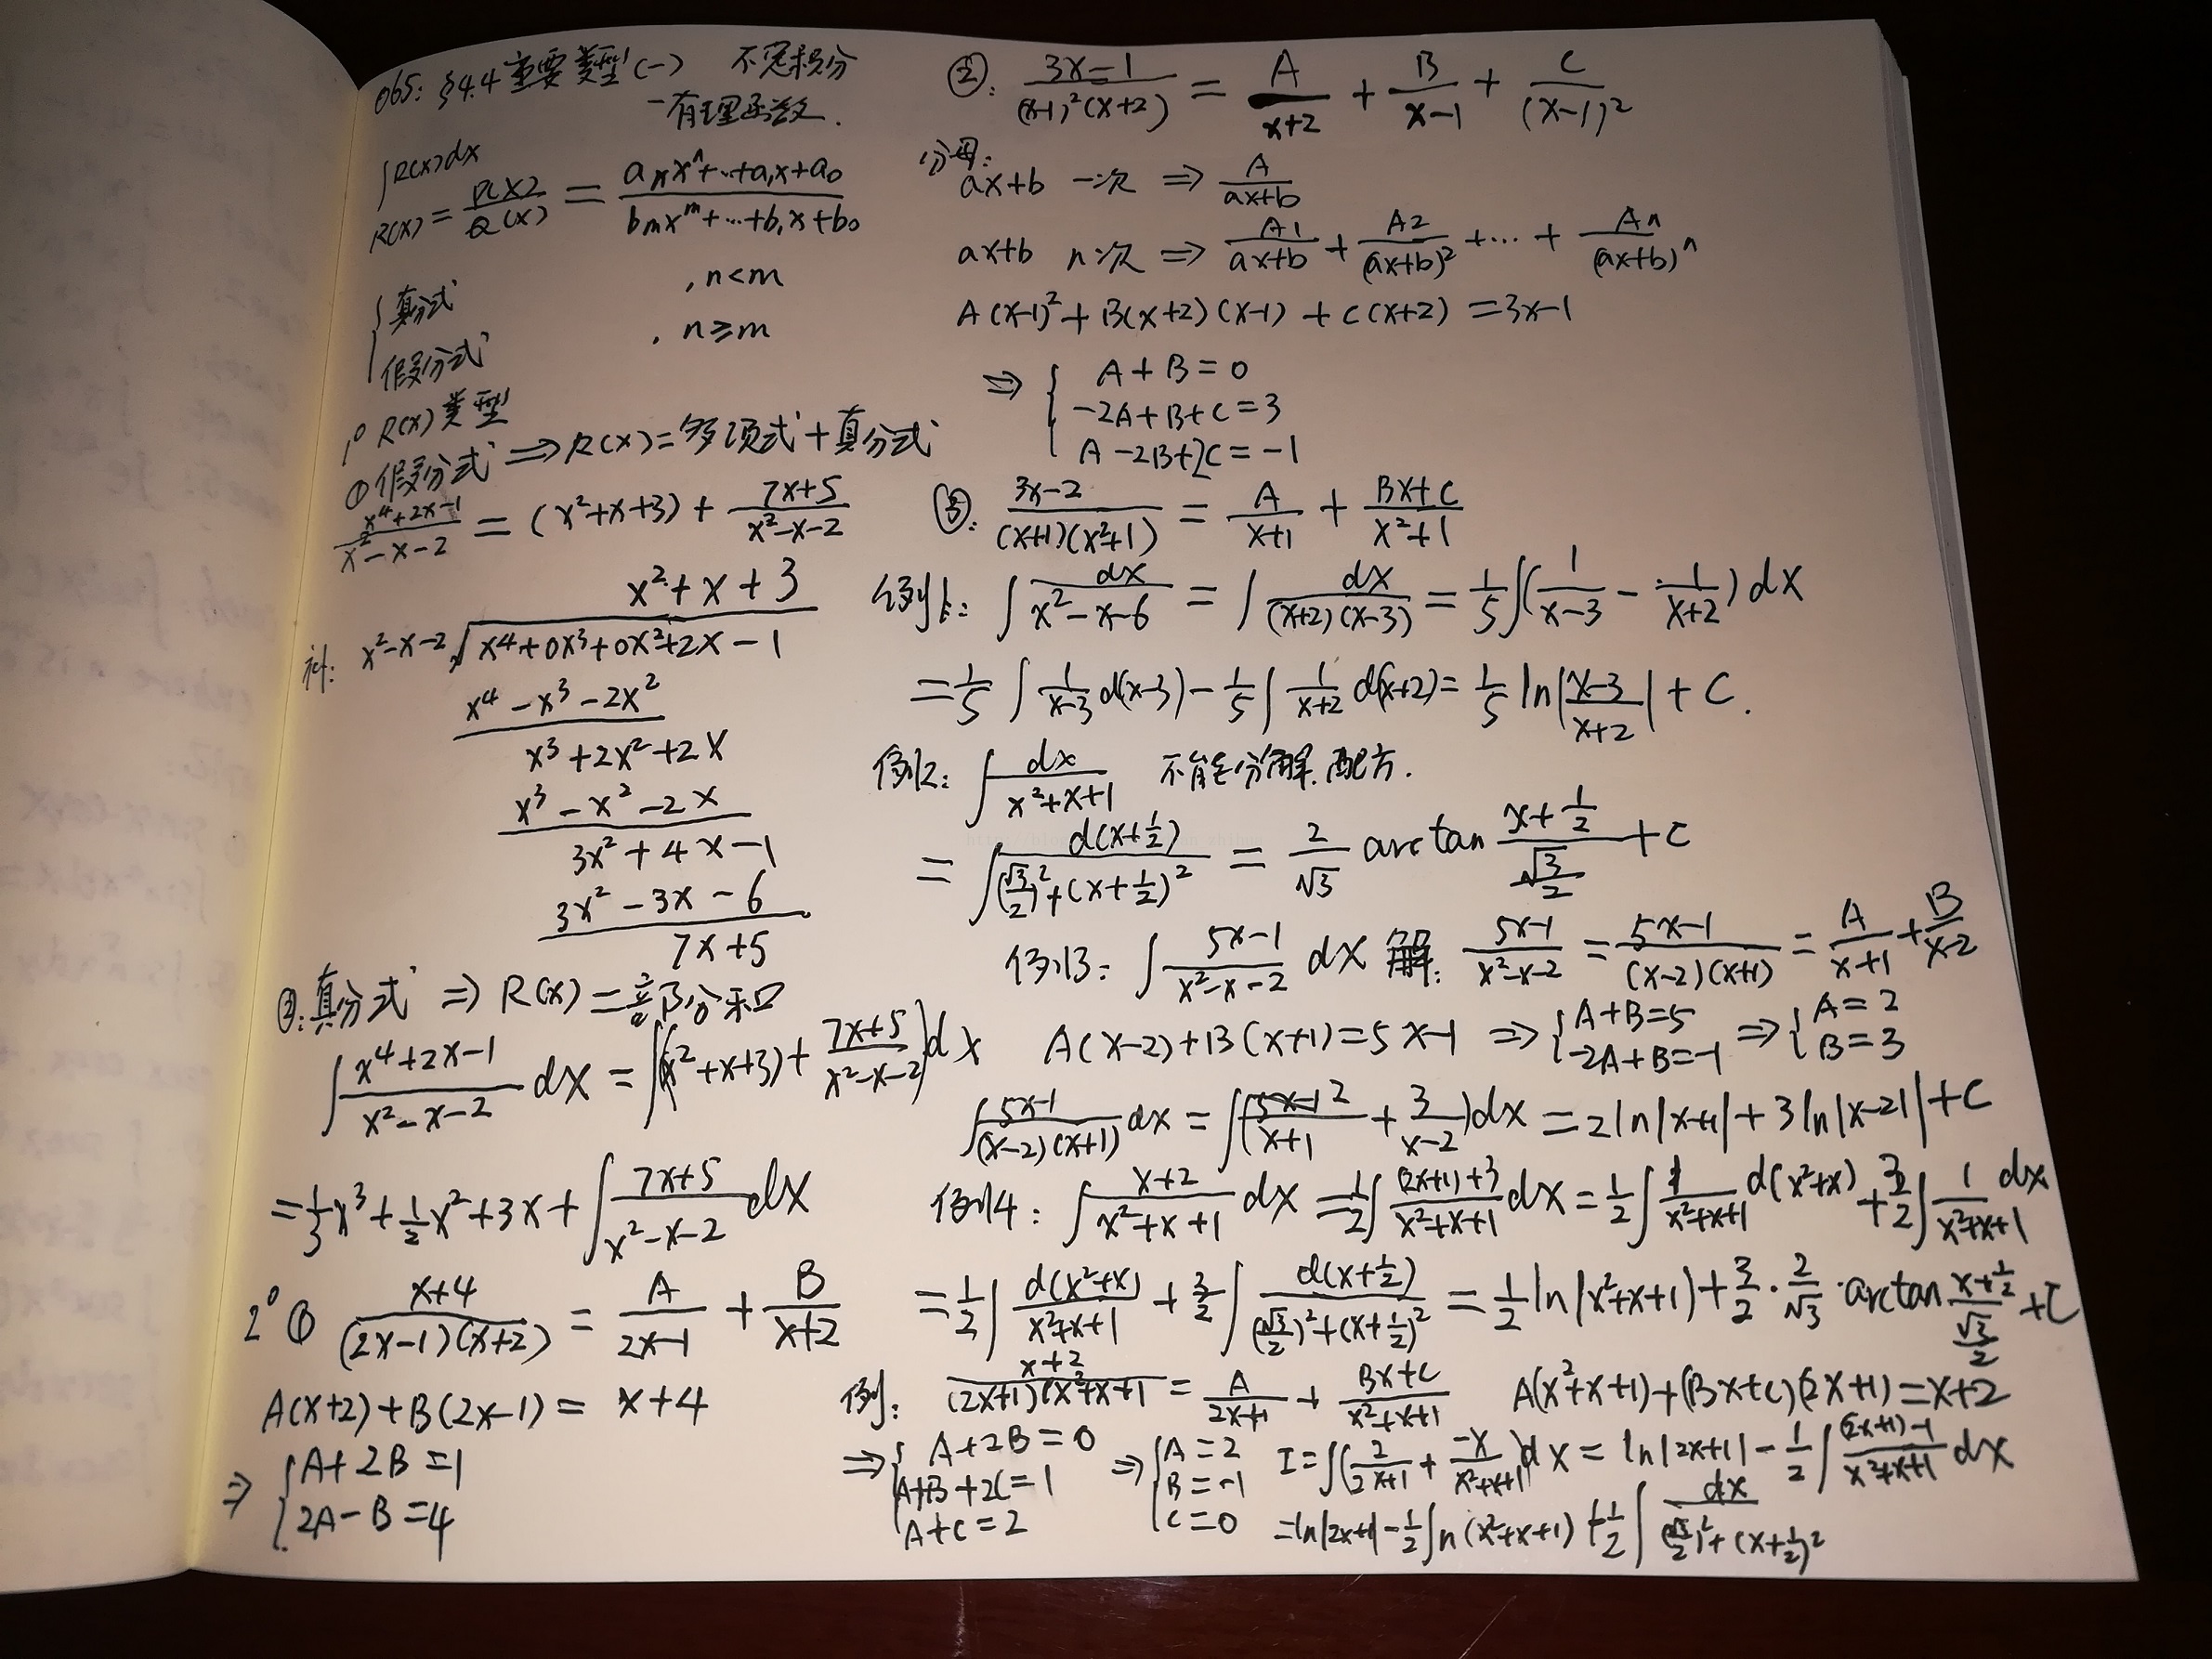 065: §4.4 重要类型(一) 不定积分
-有理函数.
∫R(x)dx
R(x) = P(x)/Q(x) = (aₙxⁿ+…+a₁x+a₀)/(bₘxᵐ+…+b₁x+b₀)
{ 真分式 , n<m
假分式 , n≥m
1⁰ R(x)类型
①假分式 ⇒ R(x)=多项式+真分式
(x⁴+2x-1)/(x²-x-2) = (x²+x+3) + (7x+5)/(x²-x-2)
x²+x+3
补: x²-x-2 √x⁴+0x³+0x²+2x-1
x⁴-x³-2x²
x³+2x²+2x
x³-x²-2x
3x²+4x-1
3x²-3x-6
7x+5
②:真分式 ⇒ R(x)=部分和
∫(x⁴+2x-1)/(x²-x-2) dx = ∫((x²+x+3)+(7x+5)/(x²-x-2))dx
=1/3x³+1/2x²+3x+∫(7x+5)/(x²-x-2)dx
2⁰ ① (x+4)/((2x-1)(x+2)) = A/(2x-1) + B/(x+2)
A(x+2)+B(2x-1)= x+4
⇒ { A+2B=1
2A-B=4
②: (3x-1)/((x-1)²(x+2)) = A/(x+2) + B/(x-1) + C/(x-1)²
分母:
ax+b 一次 ⇒ A/(ax+b)
ax+b n次 ⇒ A1/(ax+b) + A2/(ax+b)² +…+ An/(ax+b)ⁿ
A(x-1)²+B(x+2)(x-1)+C(x+2)=3x-1
⇒ { A+B=0
-2A+B+C=3
A-2B+2C=-1
③: (3x-2)/((x+1)(x²+1)) = A/(x+1) + (Bx+C)/(x²+1)
例1: ∫dx/(x²-x-6) = ∫dx/((x+2)(x-3)) = 1/5∫(1/(x-3) - 1/(x+2))dx
=1/5∫1/(x-3)d(x-3)-1/5∫1/(x+2)d(x+2)=1/5 ln|(x-3)/(x+2)|+C.
例2: ∫dx/(x²+x+1) 不能分解.配方.
= ∫d(x+1/2)/((√3/2)²+(x+1/2)²) = 2/√3 arctan (x+1/2)/(√3/2) +C
例3: ∫(5x-1)/(x²-x-2) dx 解: (5x-1)/(x²-x-2) = (5x-1)/((x-2)(x+1)) = A/(x+1)+B/(x-2)
A(x-2)+B(x+1)=5x-1 ⇒ { A+B=5 -2A+B=-1 ⇒ { A=2 B=3
∫(5x-1)/((x-2)(x+1))dx = ∫(2/(x+1) + 3/(x-2))dx = 2ln|x+1|+3ln|x-2|+C
例4: ∫(x+2)/(x²+x+1) dx =1/2∫((2x+1)+3)/(x²+x+1)dx = 1/2∫1/(x²+x+1)d(x²+x)+3/2∫1/(x²+x+1)dx
=1/2∫d(x²+x)/(x²+x+1) + 3/2∫d(x+1/2)/((√3/2)²+(x+1/2)²) = 1/2ln|x²+x+1)+3/2·2/√3·arctan (x+1/2)/(√3/2) +C
例: (x+2)/((2x+1)(x²+x+1) = A/(2x+1) + (Bx+C)/(x²+x+1) A(x²+x+1)+(Bx+C)(2x+1)=x+2
⇒ { A+2B=0 A+B+2C=1 A+C=2 ⇒ { A=2 B=-1 C=0 I=∫(2/(2x+1) + -x/(x²+x+1))dx = ln|2x+1|-1/2∫((2x+1)-1)/(x²+x+1)dx
=ln|2x+1|-1/2ln(x²+x+1)+1/2∫dx/((√3/2)²+(x+1/2)²